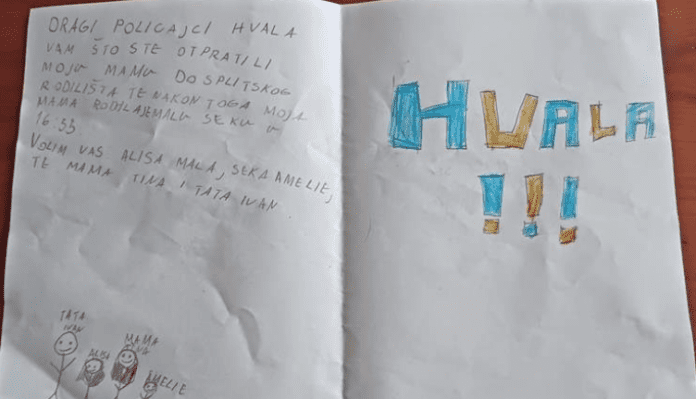 DRAGI POLICAJCI HVALA
VAM ŠTO STE OTPRATILI
MOJU MAMU DO SPLITSKOG
RODILIŠTA TE NAKON TOGA MOJA
MAMA RODILA JE MALU SEKU U
16:33
VOLIM VAS ALISA MALA, SEKA AMELIE,
TE MAMA TINA I TATA IVAN
TATA
IVAN
ALISA
MAMA
TINA
AMELIE
HVALA
!!!